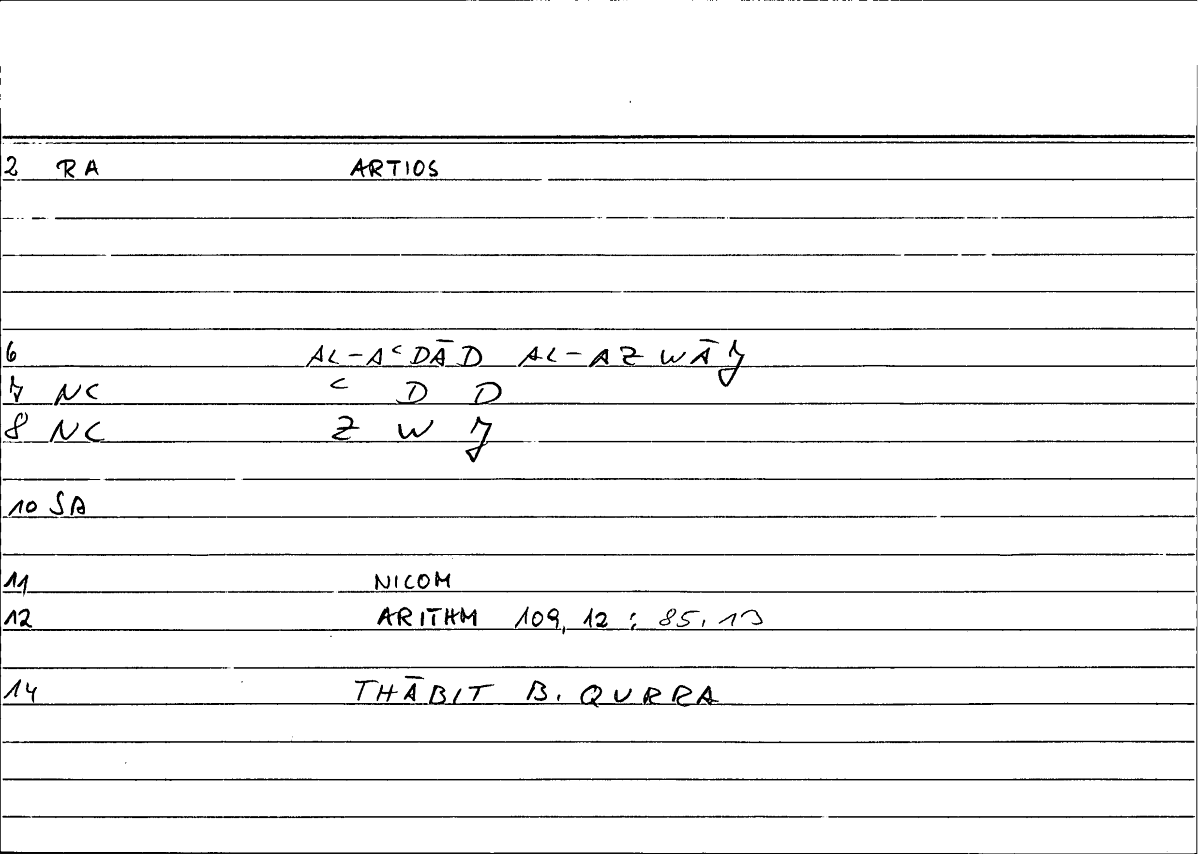 2 RA ARTIOS
6 AL-AʿDĀD AL-AZWĀJ
7 NC ʿ D D
8 NC Z W J
10 SA
11 NICOM
12 ARITHM 109, 12 : 85, 13
14 THĀBIT B. QURRA